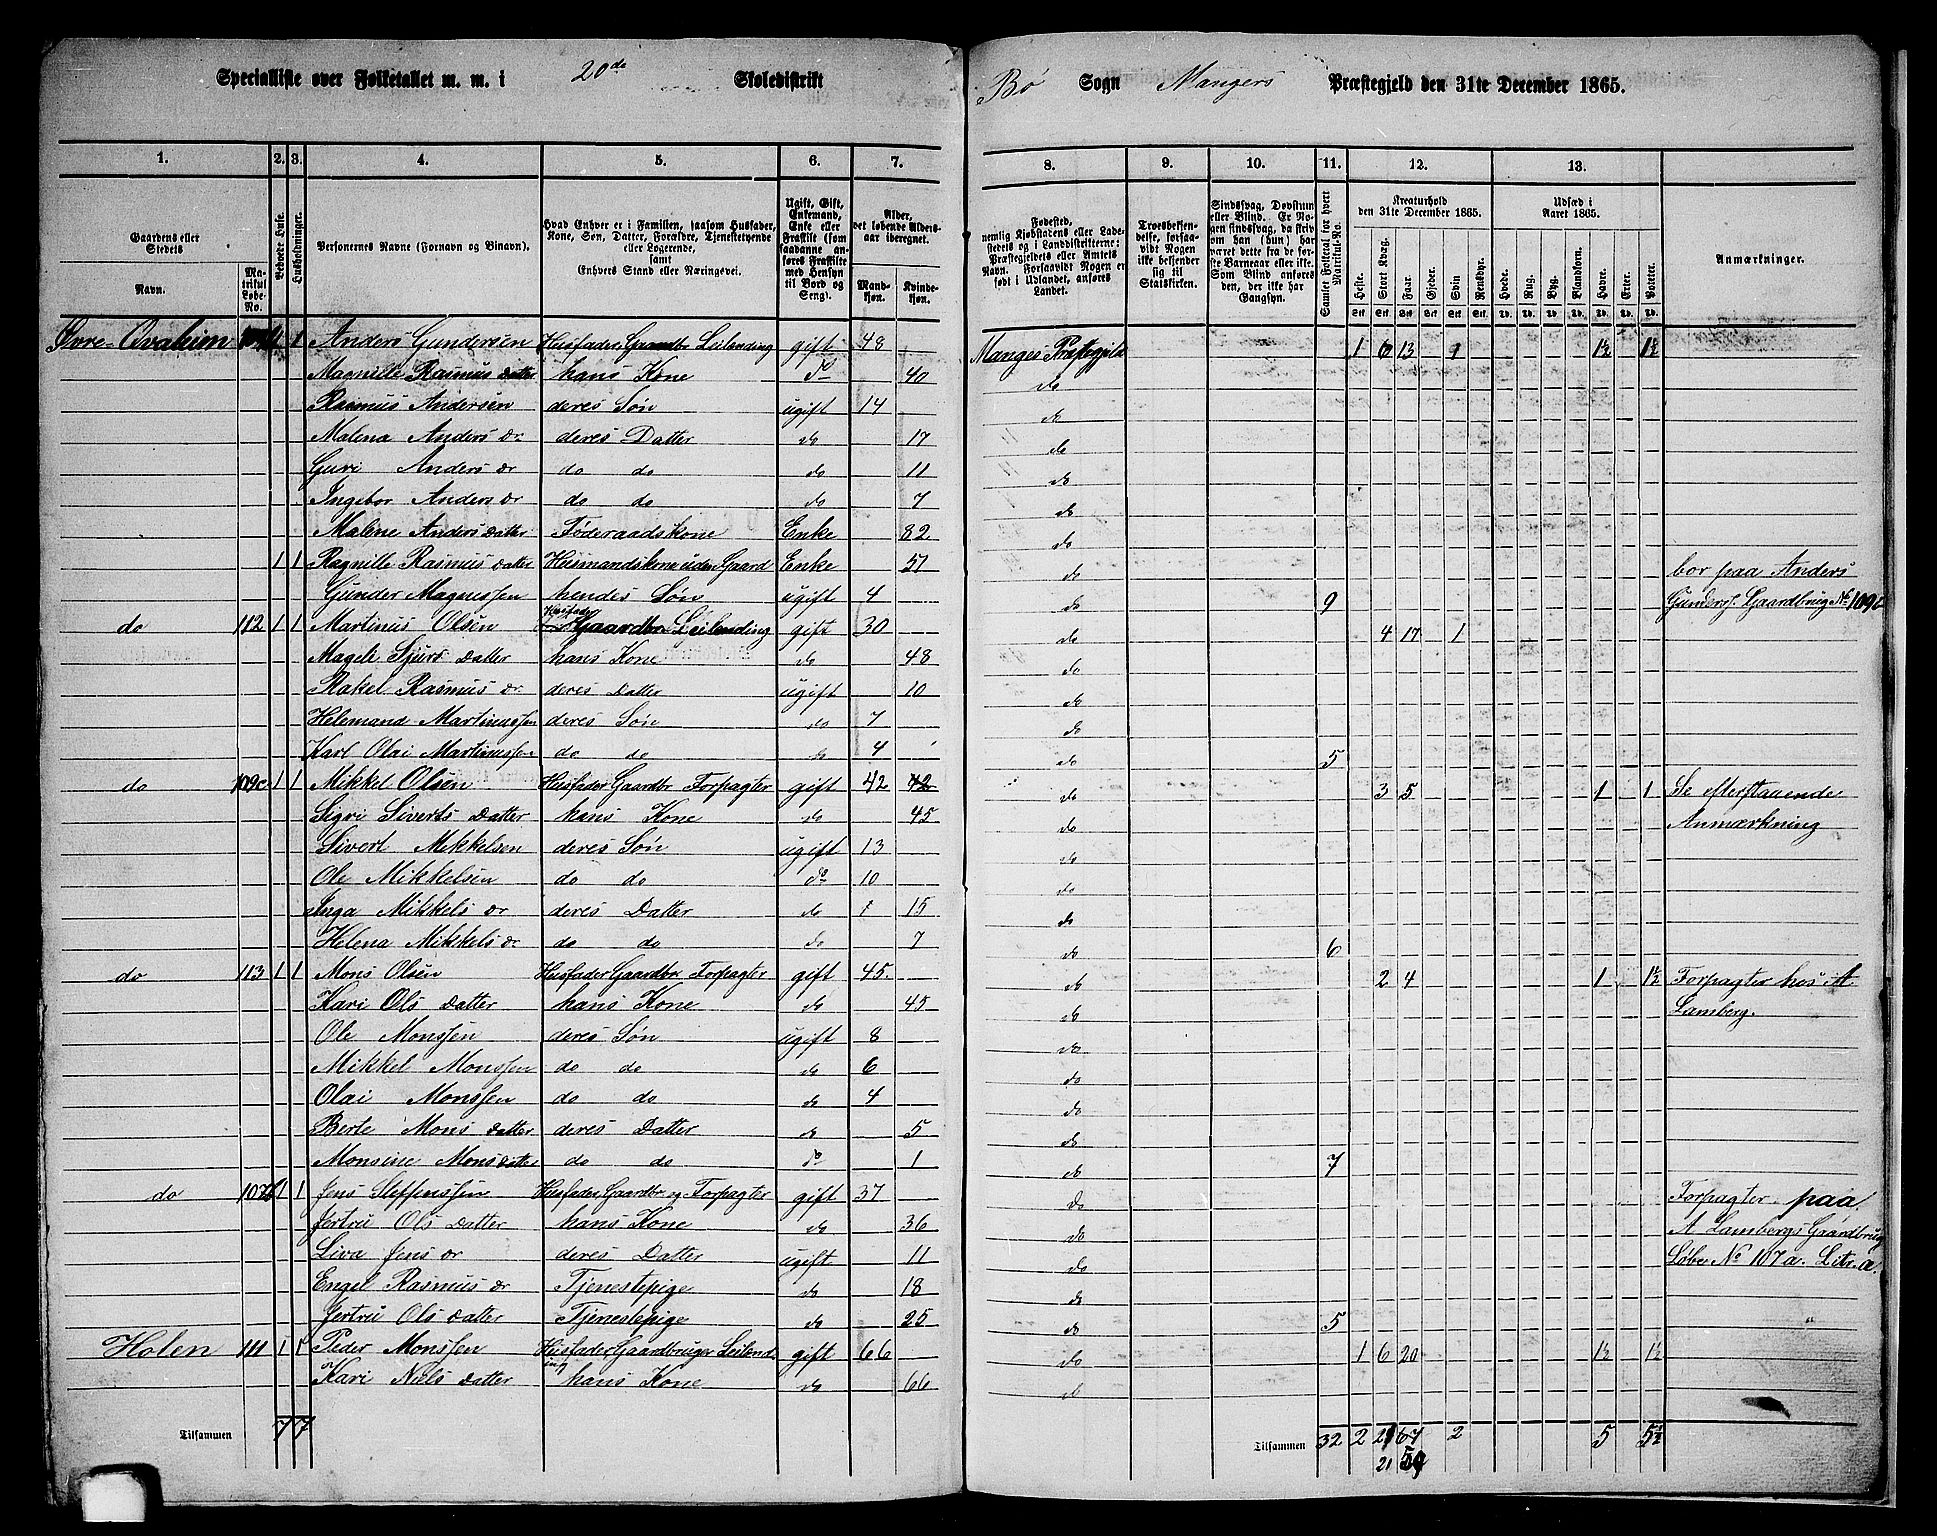 Specialliste over Folketallet m. m. i 20de Skoledistrikt Bö Sogn Mangers Præstegjeld den 31te December 1865.
1. 2. 3. 4. 5. 6. 7. 8. 9. 10. 11. 12. 13.
Gaardens eller Stedets Navn. Matrikul Løbe-No. Beboede Huse. Husholdninger. Personernes Navne (Fornavn og Binavn). Hvad Enhver er i Familien, saasom Husfader, Kone, Søn, Datter, Forældre, Tjenestetyende eller Logerende, samt Enhvers Stand eller Næringsvei. Ugift, Gift, Enkemand, Enke eller Fraskilt (som saadanne anføres Fraskilte med Hensyn til Bord og Seng). Alder, det løbende Alders-aar iberegnet. Mandkjøn. Kvindekjøn.
Fødested, nemlig Kjøbstadens eller Ladestedets og i Landdistrikterne: Præstegjeldets eller Amtets Navn. Forsaavidt Nogen er født i Udlandet, anføres Landet. Troesbekjendelse, forsaavidt Nogen ikke bekjender sig til Statskirken. Sindssvag, Døvstum eller Blind. Er Nogen sindssvag, da skriv om han (hun) har været dette fra de første Barneaar eller ikke. Som Blind anføres den, der ikke har Gangsyn. Samlet Folketal for hver Matrikul-No. Kreaturhold den 31te December 1865. Heste. Stort Kvæg. Faar. Gjeder. Svin. Rensdyr. Udsæd i Aaret 1865. Hvede. Rug. Byg. Blandkorn. Havre. Erter. Poteter. Anmærkninger.
Øvre-Qvaleim 1 1 Anders Gundersen Husfader, Gaardbr Leilending gift 48 Manges Præstegjeld 1 6 13 1 1½ 1½
Magnille Rasmus Datter hans Kone do 40 do
Rasmus Andersen deres Søn ugift 14 do
Malena Anders Dr deres Datter do 17 do
Guri Anders Dr do do do 11 do
Ingebor Anders Dr do do do 7 do
Malene Anders Datter Föderaadskone Enke 82 do
1 1 Ragnille Rasmus Datter Husmandskone uden Gaard Enke 51 do bor paa Anders
Gunder Magnussen hendes Søn ugift 4 do 9 Gunders. Gaardbrug No 109c
do 112 1 1 Martinus Olsen Husfader Gaardbr Leilending gift 30 do 4 17 1
Mageli Sjurs Datter hans Kone do 48 do
Rakel Rasmus Dr deres Datter ugift 10 do
Helemand Martinussen deres Søn do 7 do
Karl Olai Martinussen do do do 4 do 5
do 109c 1 1 Mikkel Olsen Husfader Gaardbr Forpagter gift 42 42 do 3 5 1 1 Se efterstauende
Sigri Siverts Datter hans Kone do 45 do Anmærkning
Sivert Mikkelsen deres Søn ugift 13 do
Ole Mikkelsen do do do 10 do
Inga Mikkels Dr deres Datter do 15 do
Helena Mikkels Dr do do do 7 do 6
do 113 1 1 Mons Olsen Husfader Gaardbr Forpagter gift 45 do 2 4 1 1½ Forpagter hos A.
Kari Ols Datter hans Kone do 45 do Lamberg.
Ole Monssen deres Søn ugift 8 do
Mikkel Monssen do do do 6 do
Olai Monssen do do do 4 do
Berte Mons Datter deres Datter do 5 do
Monsine Mons Datter do do do 1 do 7
do 1 1 Jens Steffenssen Husfader, Gaardbr og Forpagter gift 37 do Forpagter paa
Jertru Ols Datter hans Kone do 36 do A Lambergs Gaardbrug
Liva Jens Dr deres Datter ugift 11 do Løbe No 107a. Litr. a.
Engel Rasmus Dr Tjenestepige do 18 do
Jertru Ols Datter Tjenestepige do 25 do 5
Holen 111 1 1 Peder Monssen Husfader, Gaardbruger Leilending gift 66 do 1 6 20 1½ 1½
Kari Niels Datter hans Kone do 66 do
Tilsammen 7 7 Tilsammen 32 2 21 67 2 5 5½
21 59